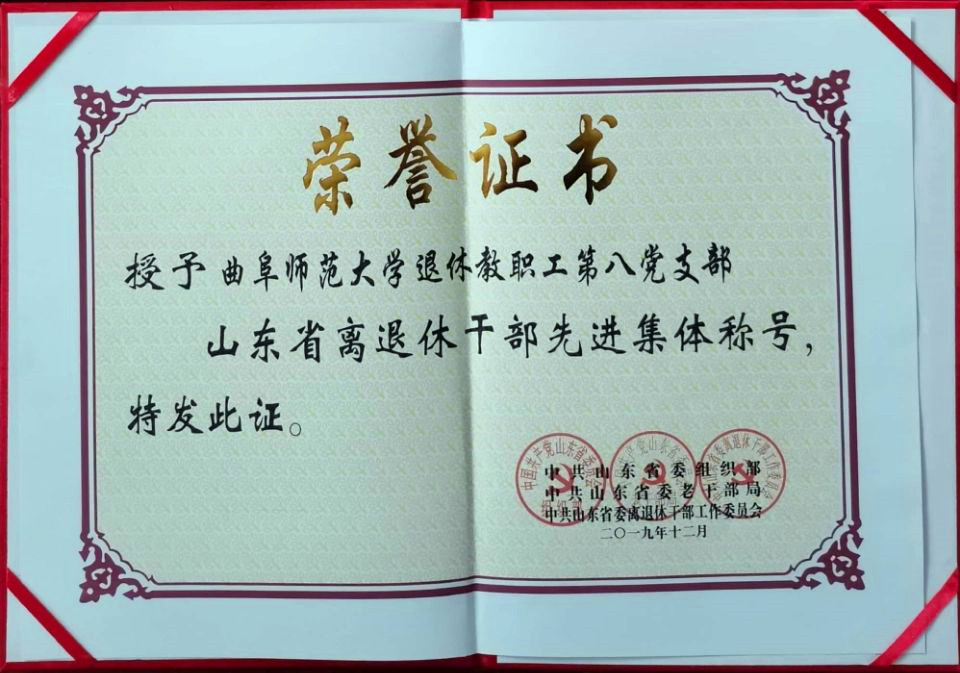 荣誉证书
授予曲阜师范大学退休教职工第八党支部
山东省离退休干部先进集体称号，
特发此证。
中共山东省委组织部
中共山东省委老干部局
中共山东省委离退休干部工作委员会
二〇一九年十二月